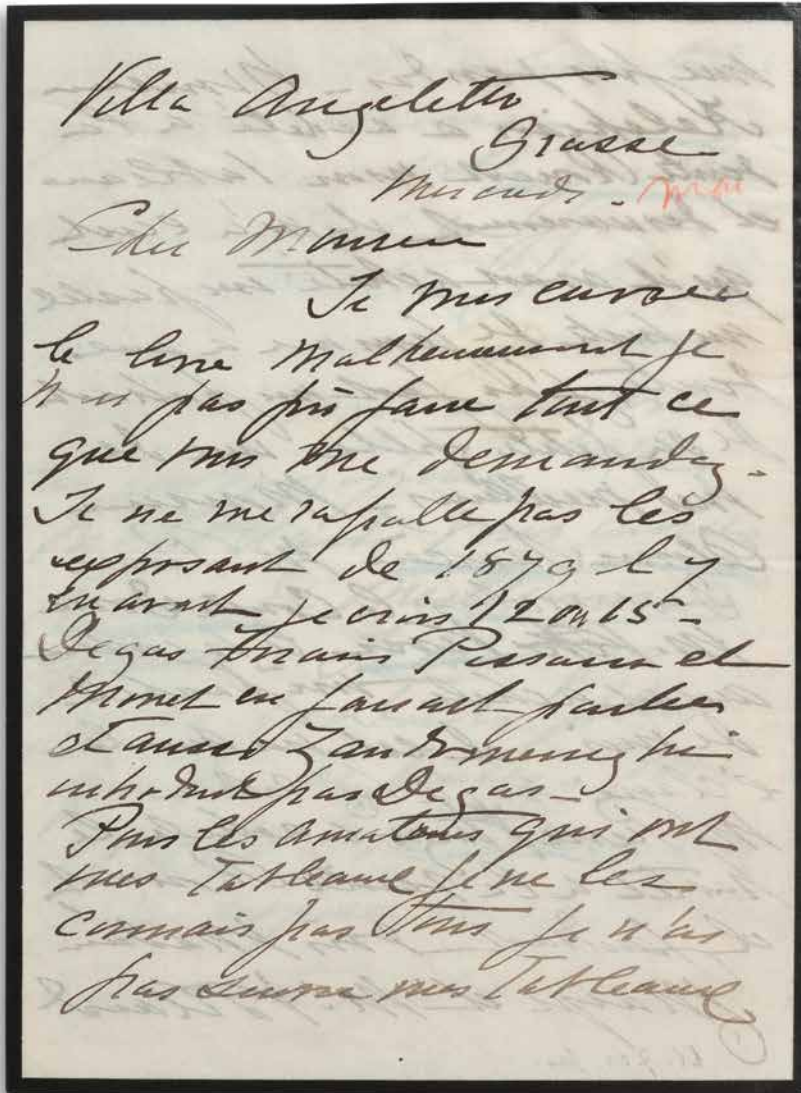 Villa Angeletto
Grasse
Mercredi -
Cher Monsieur
Je vous envoie
le livre Malheureusement je
n'ai pas pu faire tout ce
que vous me demandez -
Je ne me rapelle pas les
exposant de 1879 il y
en avait je crois 12 ou 15 -
Degas Forain Pissarro et
Monet en faisait parties
et aussi Zandomeneghi
introduit par Degas -
Pour les amateurs qui ont
mes Tableaux je ne les
connais pas tous je n'ai
pas suivre mes Tableaux